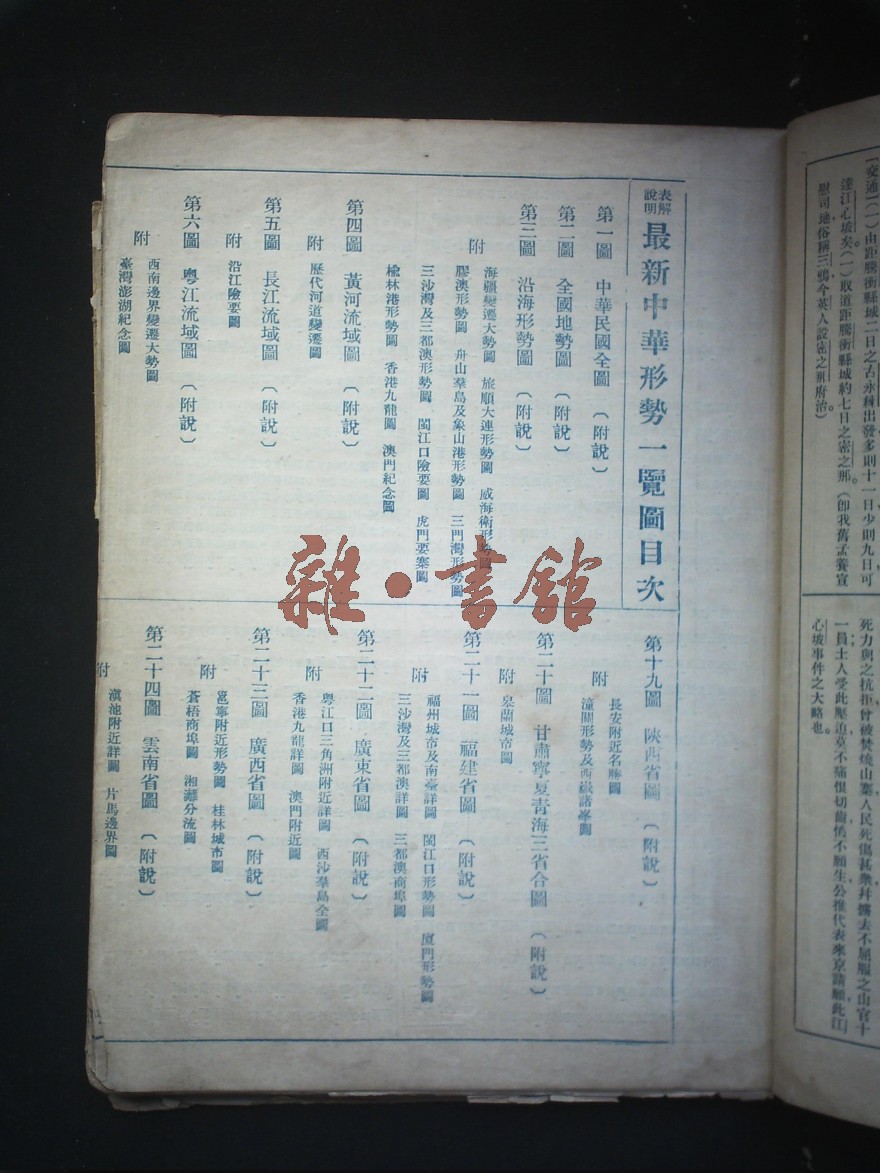 表解
說明
最新中華形勢一覽圖目次
第一圖 中華民國全圖 (附說)
第二圖 全國地勢圖 (附說)
第三圖 沿海形勢圖 (附說)
附
海疆變遷大勢圖 旅順大連形勢圖 威海衛形勢圖
膠澳形勢圖 舟山羣島及象山港形勢圖 三門灣形勢圖
三沙灣及三都澳形勢圖 閩江口險要圖 虎門要塞圖
榆林港形勢圖 香港九龍圖 澳門紀念圖
第四圖 黃河流域圖 (附說)
附
歷代河道變遷圖
第五圖 長江流域圖 (附說)
附
沿江險要圖
第六圖 粵江流域圖 (附說)
附
西南邊界變遷大勢圖
臺灣澎湖紀念圖
第十九圖 陝西省圖 (附說)
附
長安附近名勝圖
潼關形勢及西嶽諸峯圖
第二十圖 甘肅寧夏青海三省合圖 (附說)
附
皋蘭城市圖
第二十一圖 福建省圖 (附說)
附
福州城市及南臺詳圖 閩江口形勢圖 廈門形勢圖
三沙灣及三都澳詳圖 三都澳商埠圖
第二十二圖 廣東省圖 (附說)
附
粵江口三角洲附近詳圖 西沙羣島全圖
香港九龍詳圖 澳門附近圖
第二十三圖 廣西省圖 (附說)
附
邕寧附近形勢圖 桂林城市圖
蒼梧商埠圖 湘灕分流圖
第二十四圖 雲南省圖 (附說)
附
滇池附近詳圖 片馬邊界圖
雜·書館
(交通)(一)由距騰衝縣城二日之古永練出發多則十一日少則九日可
達江心坡矣(一)取道距騰衝縣城約七日之密之那(卽我舊孟養宣
慰司地俗稱三鴉今英人設密之那府治)
死力與之抗拒曾被焚燒山寨人民死傷甚衆幷擄去不屈服之山官十
一員土人受此壓迫莫不痛恨切齒憤不願生公推代表來京請願此江
心坡事件之大略也